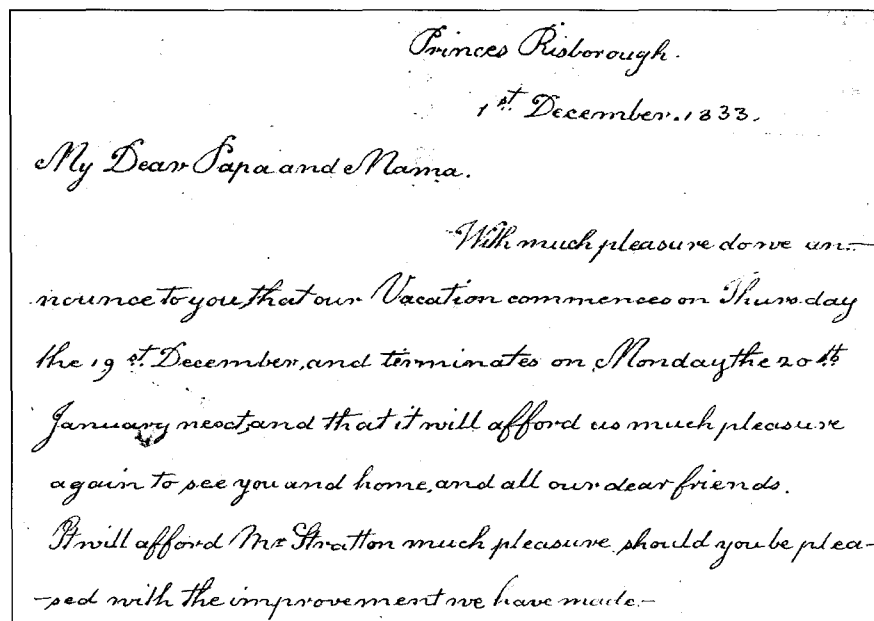 Princes Risborough.
1st December. 1833.
My Dear Papa and Mama.
With much pleasure do we an-
nounce to you, that our Vacation commences on Thursday
the 19st December, and terminates on Monday the 20th
January next, and that it will afford us much pleasure
again to see you and home, and all our dear friends.
It will afford Mr Stratton much pleasure should you be plea-
-sed with the improvement we have made-